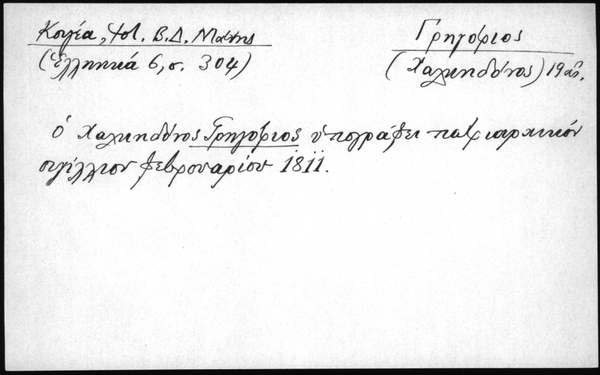 Κουγέα, Β.Δ. Μάνης
(Ἑλληνικά 6, σ. 304)
Γρηγόριος
(Χαλκηδόνος) 19 αἰ.
ὁ Χαλκηδόνος Γρηγόριος ὑπογράφει πατριαρχικόν
σιγίλλιον φεβρουαρίου 1811.